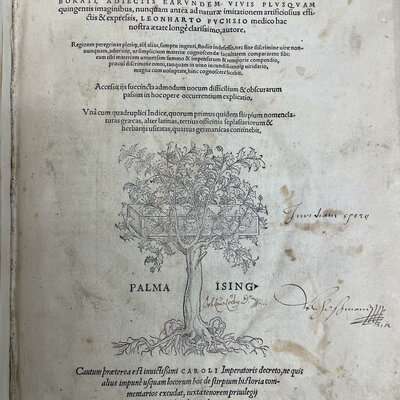 BORATI, ADIECTIS EARVNDEM VIVIS PLVSQVAM
quingentis imaginibus, nunquam antea ad naturæ imitationem artificiosius effi-
ctis & expressis, LEONHARTO FVCHSIO medico hac
nostra ætate longè clarissimo, autore.
Regiones peregrinas plerique, alij alias, sumptu ingenti, studio indefesso, nec sine discrimine uitæ non-
nunquam, adierunt, ut simplicium materiæ cognoscendæ facultatem compararent sibi:
eam tibi materiam uniuersam summo & impensarum & temporis compendio,
procul discrimine omni, tanquam in uiuo iucundissimoque uiridario,
magna cum uoluptate, hinc cognoscere licebit.
Accessit ijs succincta admodum uocum difficilium & obscurarum
passim in hoc opere occurrentium explicatio.
Vnà cum quadruplici Indice, quorum primus quidem stirpium nomencla-
turas græcas, alter latinas, tertius officinis seplasiariorum &
herbarijs usitatas, quartus germanicas continebit.
PALMA ISING.
Cautum præterea est inuictissimi CAROLI Imperatoris decreto, ne quis
alius impunè usquam locorum hos de stirpium historia com-
mentarios excudat, iuxta tenorem priuilegij